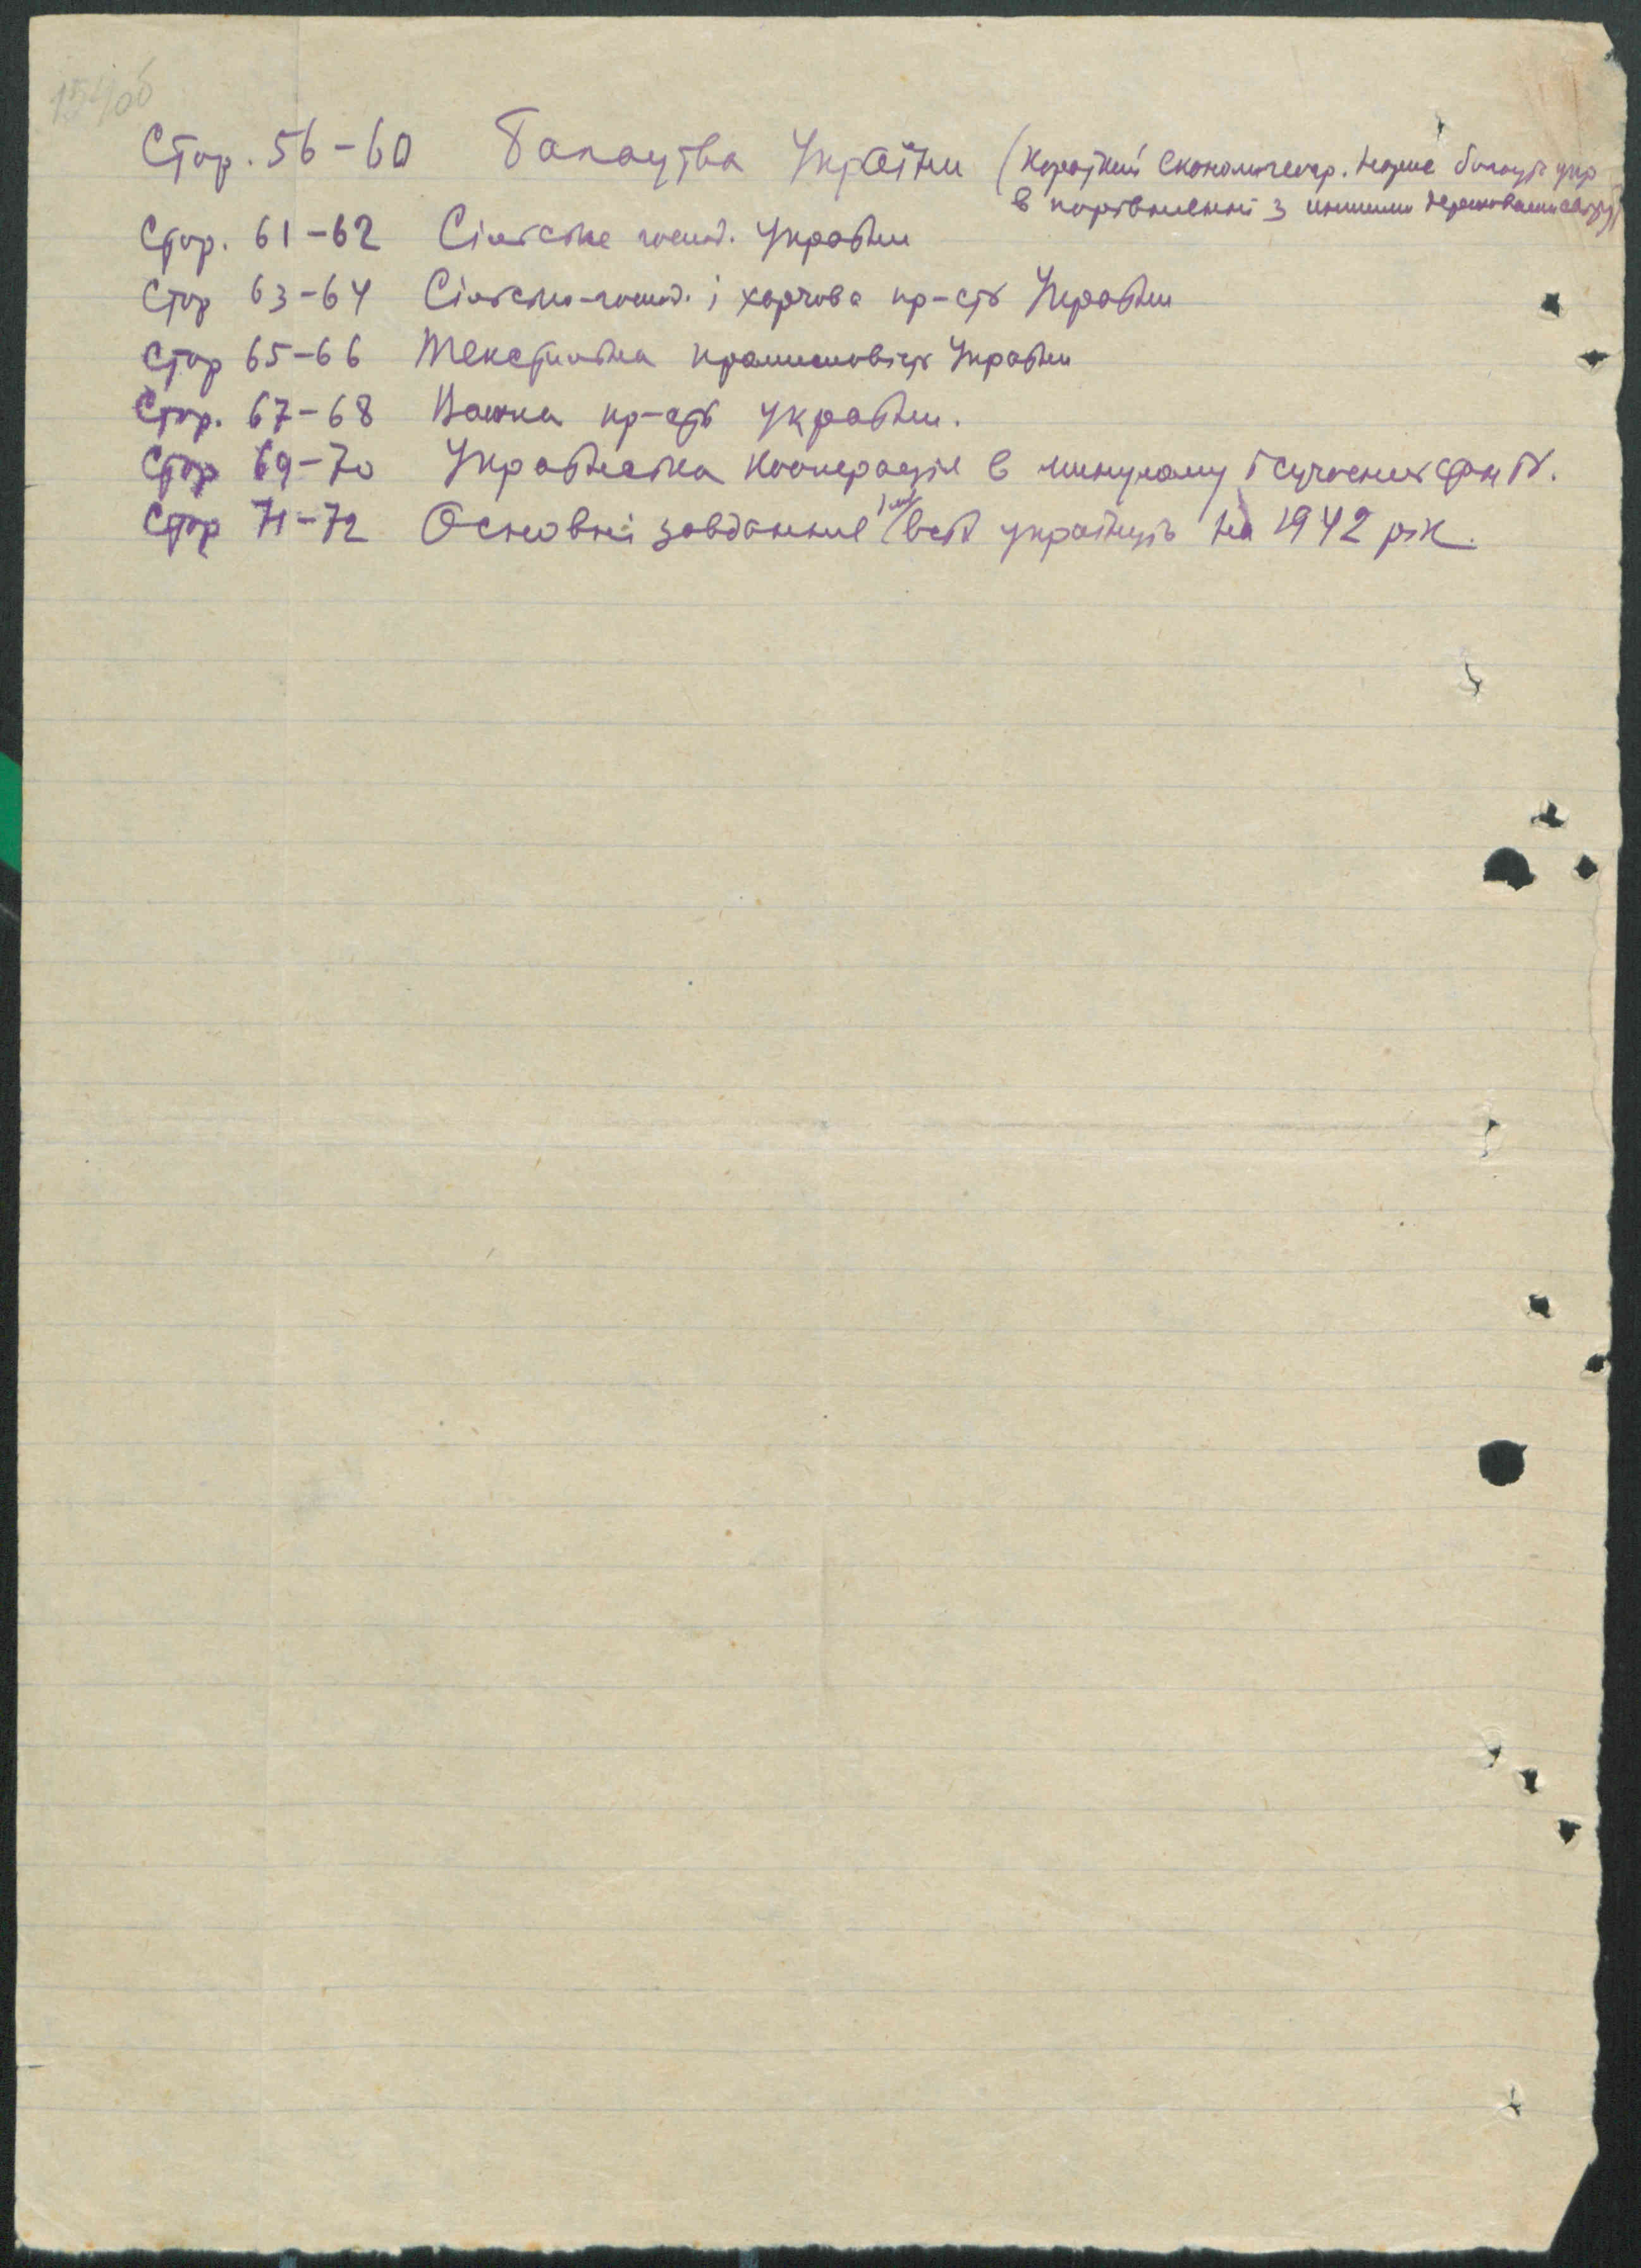 154об
Стор. 56-60 Багацтва України (Короткий економгеогр. нарис багацт. укр
в порівненні з иншими державами світу)
Стор. 61-62 Сільське госп. України
Стор 63-64 Сільсько-госп. і харчова пр-сть України
Стор 65-66 Текстильна промисловість України
Стор. 67-68 Важка пр-сть України.
Стор 69-70 Українська кооперація в минулому і сучасний стан її.
Стор 71-72 Основні завдання всіх українців на 1942 рік.